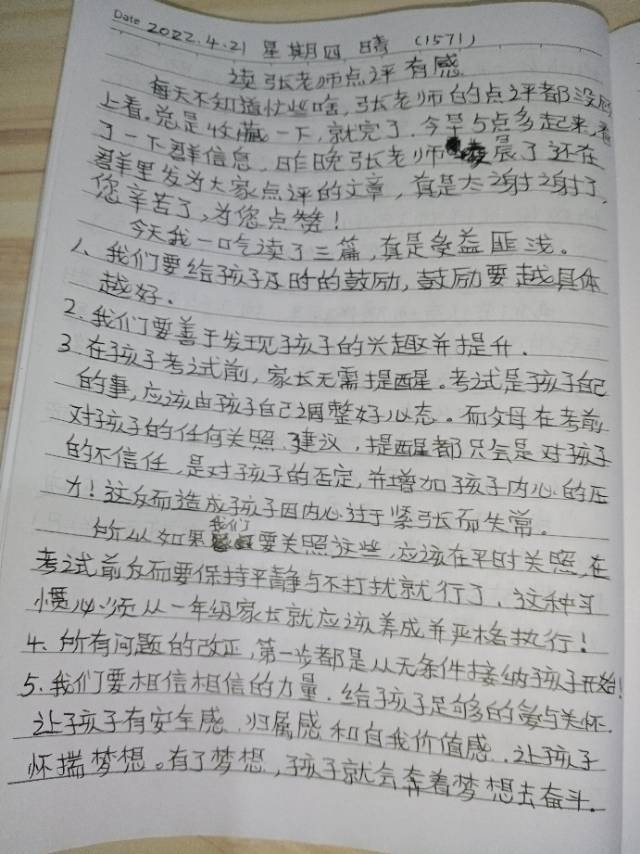 Date 2022.4.21 星期四 晴 (1571)
读张老师点评有感
每天不知道忙些啥,张老师的点评都没顾
上看。总是收藏一下,就完了,今早5点多起来,看
了一下群信息,昨晚张老师凌晨了还在
群里发为大家点评的文章,真是太谢谢了,
您辛苦了,为您点赞!
今天我一口气读了三篇,真是受益匪浅。
1、我们要给孩子及时的鼓励,鼓励要越具体
越好.
2.我们要善于发现孩子的兴趣并提升.
3.在孩子考试前,家长无需提醒。考试是孩子自己
的事,应该由孩子自己调整好心态。而父母在考前
对孩子的任何关照、建议,提醒都只会是对孩子
的不信任,是对孩子的否定,并增加孩子内心的压
力!这反而造成孩子因内心过于紧张而失常。
所以如果我们要关照这些,应该在平时关照,在
考试前反而要保持平静与不打扰就行了,这种习
惯必须从一年级家长就应该养成并严格执行!
4、所有问题的改正,第一步都是从无条件接纳孩子开始!
5.我们要相信相信的力量.给孩子足够的爱与关怀.
让孩子有安全感、归属感和自我价值感..让孩子
怀揣梦想。有了梦想,孩子就会奔着梦想去奋斗.